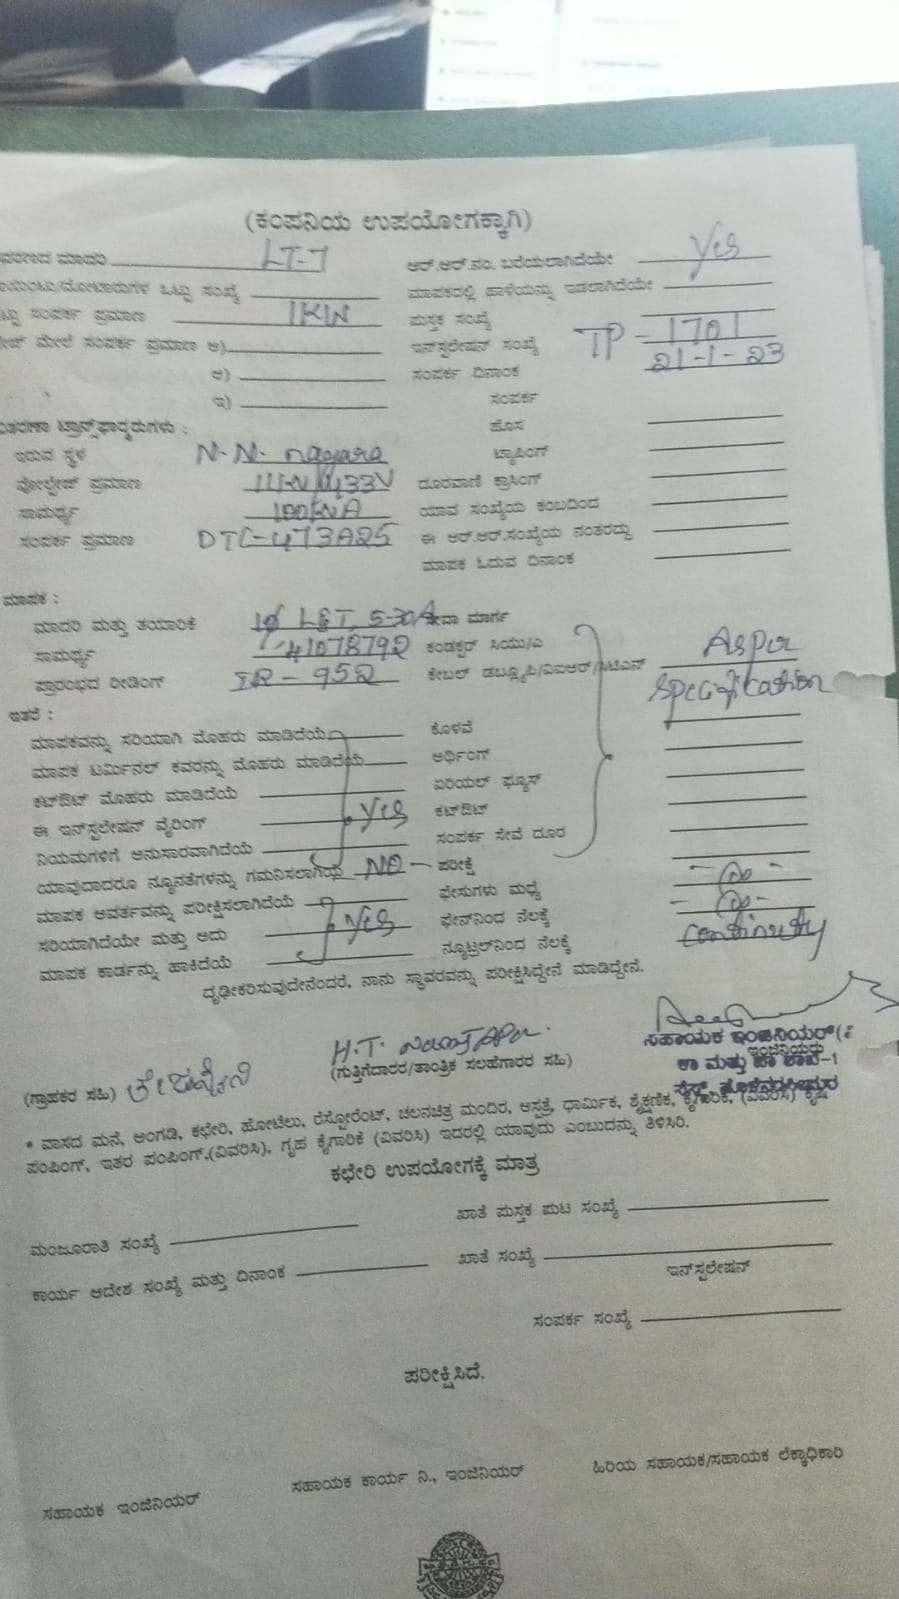 (ಕಂಪನಿಯ ಉಪಯೋಗಕ್ಕಾಗಿ)
ಮಾದರಿ LT-7 ಆರ್.ಆರ್.ನಂ. ಬರೆಯಲಾಗಿದೆಯೇ Yes
ಒಟ್ಟು ಸಂಖ್ಯೆ ಮಾಪಕದಲ್ಲಿ ಹಾಳೆಯನ್ನು ಇಡಲಾಗಿದೆಯೇ
ಸಂಪರ್ಕ ಪ್ರಮಾಣ 1KW ಪುಸ್ತಕ ಸಂಖ್ಯೆ
ಮೇಲೆ ಸಂಪರ್ಕ ಪ್ರಮಾಣ ಅ) ಇನ್‌ಸ್ಟಲೇಷನ್ ಸಂಖ್ಯೆ TP-1701
ಆ) ಸಂಪರ್ಕ ದಿನಾಂಕ 21-1-23
ಇ) ಸಂಪರ್ಕ
ಟ್ರಾನ್ಸ್‌ಫಾರ್ಮರುಗಳು : ಹೊಸ
ಇರುವ ಸ್ಥಳ N.N. nagara ಟ್ಯಾಪಿಂಗ್
ವೋಲ್ಟೇಜ್ ಪ್ರಮಾಣ 11KV/433V ದೂರವಾಣಿ ಕ್ರಾಸಿಂಗ್
ಸಾಮರ್ಥ್ಯ 100KVA ಯಾವ ಸಂಖ್ಯೆಯ ಕಂಬದಿಂದ
ಸಂಪರ್ಕ ಪ್ರಮಾಣ DTC-473A25 ಈ ಆರ್.ಆರ್.ಸಂಖ್ಯೆಯ ನಂತರದ್ದು
ಮಾಪಕ ಓದುವ ದಿನಾಂಕ
ಮಾಪಕ :
ಮಾದರಿ ಮತ್ತು ತಯಾರಿಕೆ 1φ L&T, 5-30A ಸೇವಾ ಮಾರ್ಗ
ಸಾಮರ್ಥ್ಯ 41078792 ಕಂಡಕ್ಟರ್ ಸಿಯು/ಎ Asper
ಪ್ರಾರಂಭದ ರೀಡಿಂಗ್ IR-952 ಕೇಬಲ್ specification
ಇತರೆ :
ಮಾಪಕವನ್ನು ಸರಿಯಾಗಿ ಮೊಹರು ಮಾಡಿದೆಯೆ ಕೊಳವೆ
ಮಾಪಕ ಟರ್ಮಿನಲ್ ಕವರನ್ನು ಮೊಹರು ಮಾಡಿದೆಯೆ ಅರ್ಥಿಂಗ್
ಕಟ್‌ಔಟ್ ಮೊಹರು ಮಾಡಿದೆಯೆ ಏರಿಯಲ್ ಫ್ಯೂಸ್
ಈ ಇನ್‌ಸ್ಟಲೇಷನ್ ವೈರಿಂಗ್ Yes ಕಟ್‌ಔಟ್
ನಿಯಮಗಳಿಗೆ ಅನುಸಾರವಾಗಿದೆಯೆ ಸಂಪರ್ಕ ಸೇವೆ ದೂರ
ಯಾವುದಾದರೂ ನ್ಯೂನತೆಗಳನ್ನು ಗಮನಿಸಲಾಗಿದೆಯೆ NO ಪರೀಕ್ಷೆ
ಮಾಪಕ ಆವರ್ತವನ್ನು ಪರೀಕ್ಷಿಸಲಾಗಿದೆಯೆ ಫೇಸುಗಳು ಮಧ್ಯೆ -∞-
ಸರಿಯಾಗಿದೆಯೇ ಮತ್ತು ಅದು Yes ಫೇಸ್‌ನಿಂದ ನೆಲಕ್ಕೆ -∞-
ಮಾಪಕ ಕಾರ್ಡನ್ನು ಹಾಕಿದೆಯೆ ನ್ಯೂಟ್ರಲ್‌ನಿಂದ ನೆಲಕ್ಕೆ continuity
ದೃಢೀಕರಿಸುವುದೇನೆಂದರೆ, ನಾನು ಸ್ಥಾವರವನ್ನು ಪರೀಕ್ಷಿಸಿದ್ದೇನೆ ಮಾಡಿದ್ದೇನೆ.
H.T.
ಸಹಾಯಕ ಇಂಜಿನಿಯರ್
(ಗ್ರಾಹಕರ ಸಹಿ) (ಗುತ್ತಿಗೆದಾರರ/ತಾಂತ್ರಿಕ ಸಲಹೆಗಾರರ ಸಹಿ)
* ವಾಸದ ಮನೆ, ಅಂಗಡಿ, ಕಛೇರಿ, ಹೋಟೆಲು, ರೆಸ್ಟೋರೆಂಟ್, ಚಲನಚಿತ್ರ ಮಂದಿರ, ಆಸ್ಪತ್ರೆ, ಧಾರ್ಮಿಕ, ಶೈಕ್ಷಣಿಕ, ಕೈಗಾರಿಕೆ, (ವಿವರಿಸಿ) ಕೃಷಿ
ಪಂಪಿಂಗ್, ಇತರ ಪಂಪಿಂಗ್.(ವಿವರಿಸಿ), ಗೃಹ ಕೈಗಾರಿಕೆ (ವಿವರಿಸಿ) ಇದರಲ್ಲಿ ಯಾವುದು ಎಂಬುದನ್ನು ತಿಳಿಸಿರಿ.
ಕಛೇರಿ ಉಪಯೋಗಕ್ಕೆ ಮಾತ್ರ
ಮಂಜೂರಾತಿ ಸಂಖ್ಯೆ ಖಾತೆ ಪುಸ್ತಕ ಪುಟ ಸಂಖ್ಯೆ
ಕಾರ್ಯ ಆದೇಶ ಸಂಖ್ಯೆ ಮತ್ತು ದಿನಾಂಕ ಖಾತೆ ಸಂಖ್ಯೆ
ಇನ್‌ಸ್ಟಲೇಷನ್
ಸಂಪರ್ಕ ಸಂಖ್ಯೆ
ಪರೀಕ್ಷಿಸಿದೆ.
ಸಹಾಯಕ ಇಂಜಿನಿಯರ್ ಸಹಾಯಕ ಕಾರ್ಯ ನಿ., ಇಂಜಿನಿಯರ್ ಹಿರಿಯ ಸಹಾಯಕ/ಸಹಾಯಕ ಲೆಕ್ಕಾಧಿಕಾರಿ